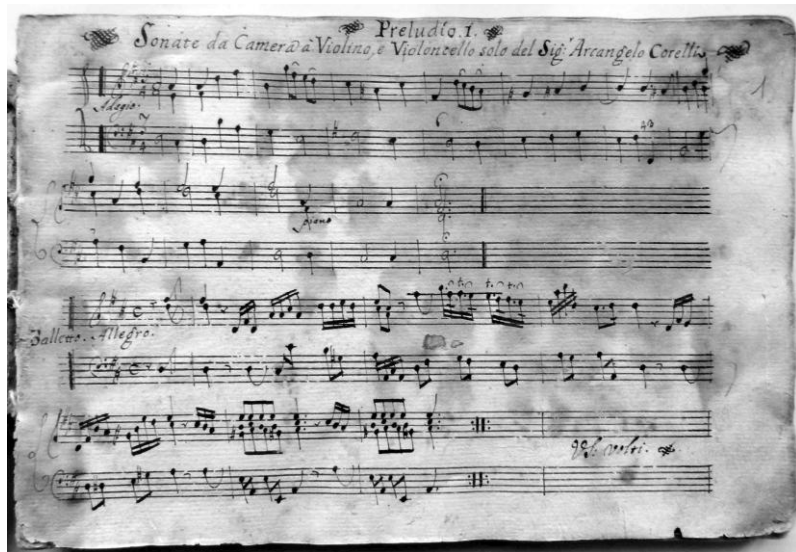 Preludio. I.
Sonate da Camera à Violino, e Violoncello solo del Sig.r Arcangelo Corelli
1.
Adagio.
piano
Balletto. Allegro.
volti.